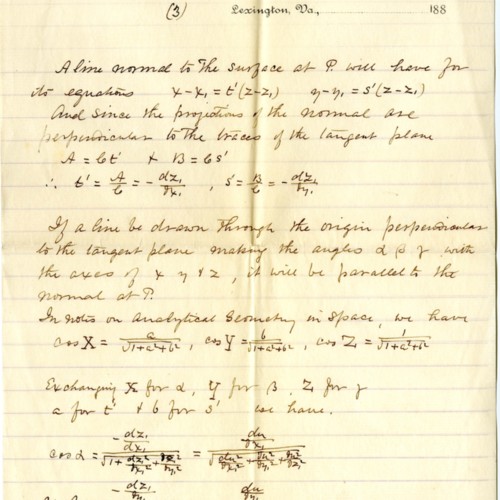 (3) Lexington, Va., 188
A line normal to the surface at P. will have for
its equations x-x₁=t'(z-z₁) y-y₁=s'(z-z₁)
And since the projections of the normal are
perpendicular to the traces of the tangent plane
A = Ct' & B = Cs'
∴ t' = A/C = -dz₁/dx₁ , s' = B/C = -dz₁/dy₁
If a line be drawn through the origin perpendicular
to the tangent plane making the angles α β γ with
the axes of x y & z, it will be parallel to the
normal at P.
In notes on Analytical Geometry in Space, we have
cos X = a/√(1+a²+b²), cos Y = b/√(1+a²+b²), cos Z = 1/√(1+a²+b²)
Exchanging X for α, Y for β, Z for γ
a for t' & b for s' we have.
cos α = (-dz₁/dx₁)/√(1+dz₁²/dx₁²+dz₁²/dy₁²) = (du/dx₁)/√(du²/dx₁²+du²/dy₁²+du²/dz₁²)
-dz₁/dy₁ du/dy₁